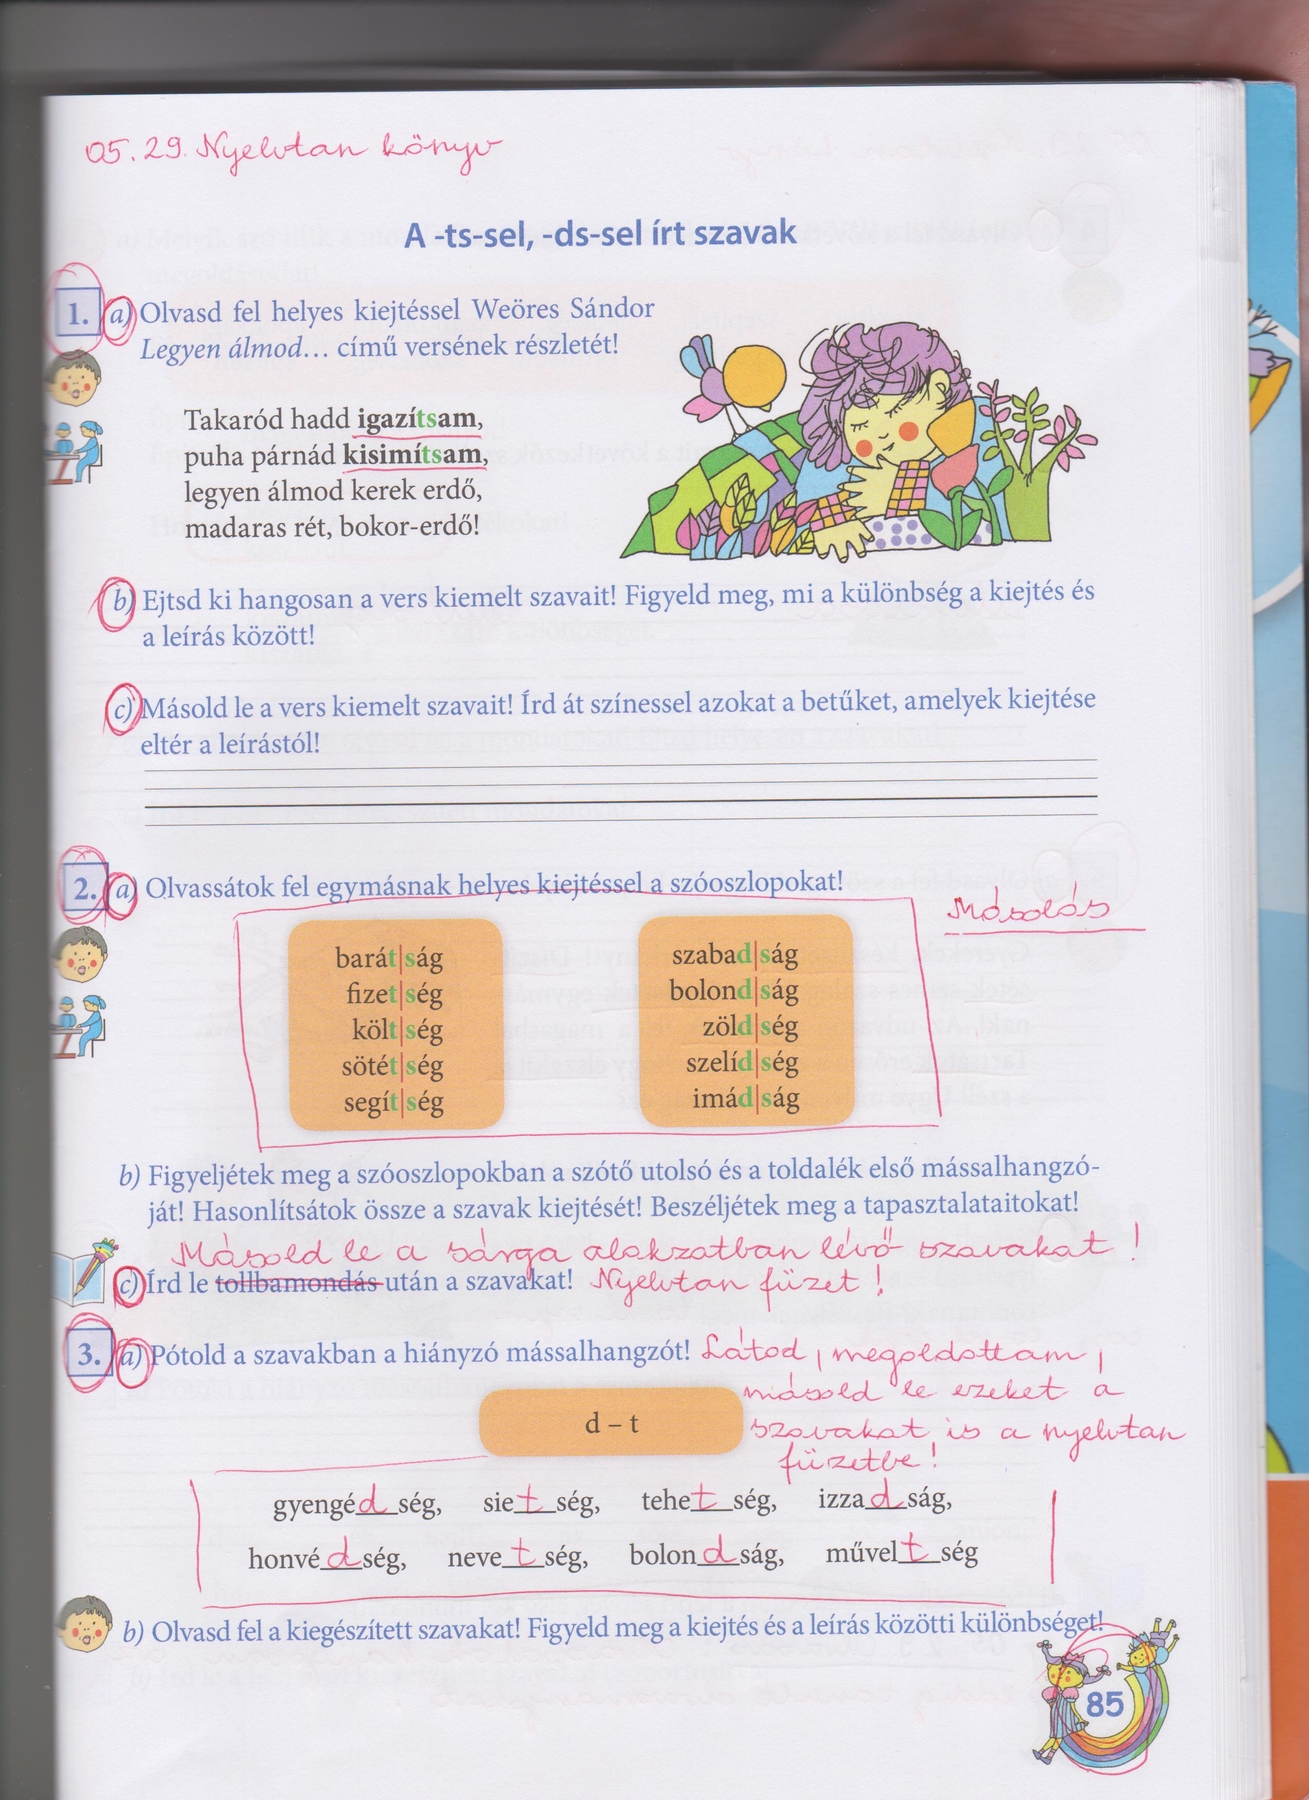 05.29. Nyelvtan könyv
A -ts-sel, -ds-sel írt szavak
1. a) Olvasd fel helyes kiejtéssel Weöres Sándor
Legyen álmod… című versének részletét!
Takaród hadd igazítsam,
puha párnád kisimítsam,
legyen álmod kerek erdő,
madaras rét, bokor-erdő!
b) Ejtsd ki hangosan a vers kiemelt szavait! Figyeld meg, mi a különbség a kiejtés és
a leírás között!
c) Másold le a vers kiemelt szavait! Írd át színessel azokat a betűket, amelyek kiejtése
eltér a leírástól!
2. a) Olvassátok fel egymásnak helyes kiejtéssel a szóoszlopokat!
Másolás
barát|ság
fizet|ség
költ|ség
sötét|ség
segít|ség
szabad|ság
bolond|ság
zöld|ség
szelíd|ség
imád|ság
b) Figyeljétek meg a szóoszlopokban a szótő utolsó és a toldalék első mássalhangzó-
ját! Hasonlítsátok össze a szavak kiejtését! Beszéljétek meg a tapasztalataitokat!
Másold le a sárga alakzatban lévő szavakat!
c) Írd le tollbamondás után a szavakat! Nyelvtan füzet!
3. a) Pótold a szavakban a hiányzó mássalhangzót! Látod, megoldottam,
másold le ezeket a
d – t
szavakat is a nyelvtan
füzetbe!
gyengédség, sietség, tehetség, izzadság,
honvédség, nevetség, bolondság, műveltség
b) Olvasd fel a kiegészített szavakat! Figyeld meg a kiejtés és a leírás közötti különbséget!
85